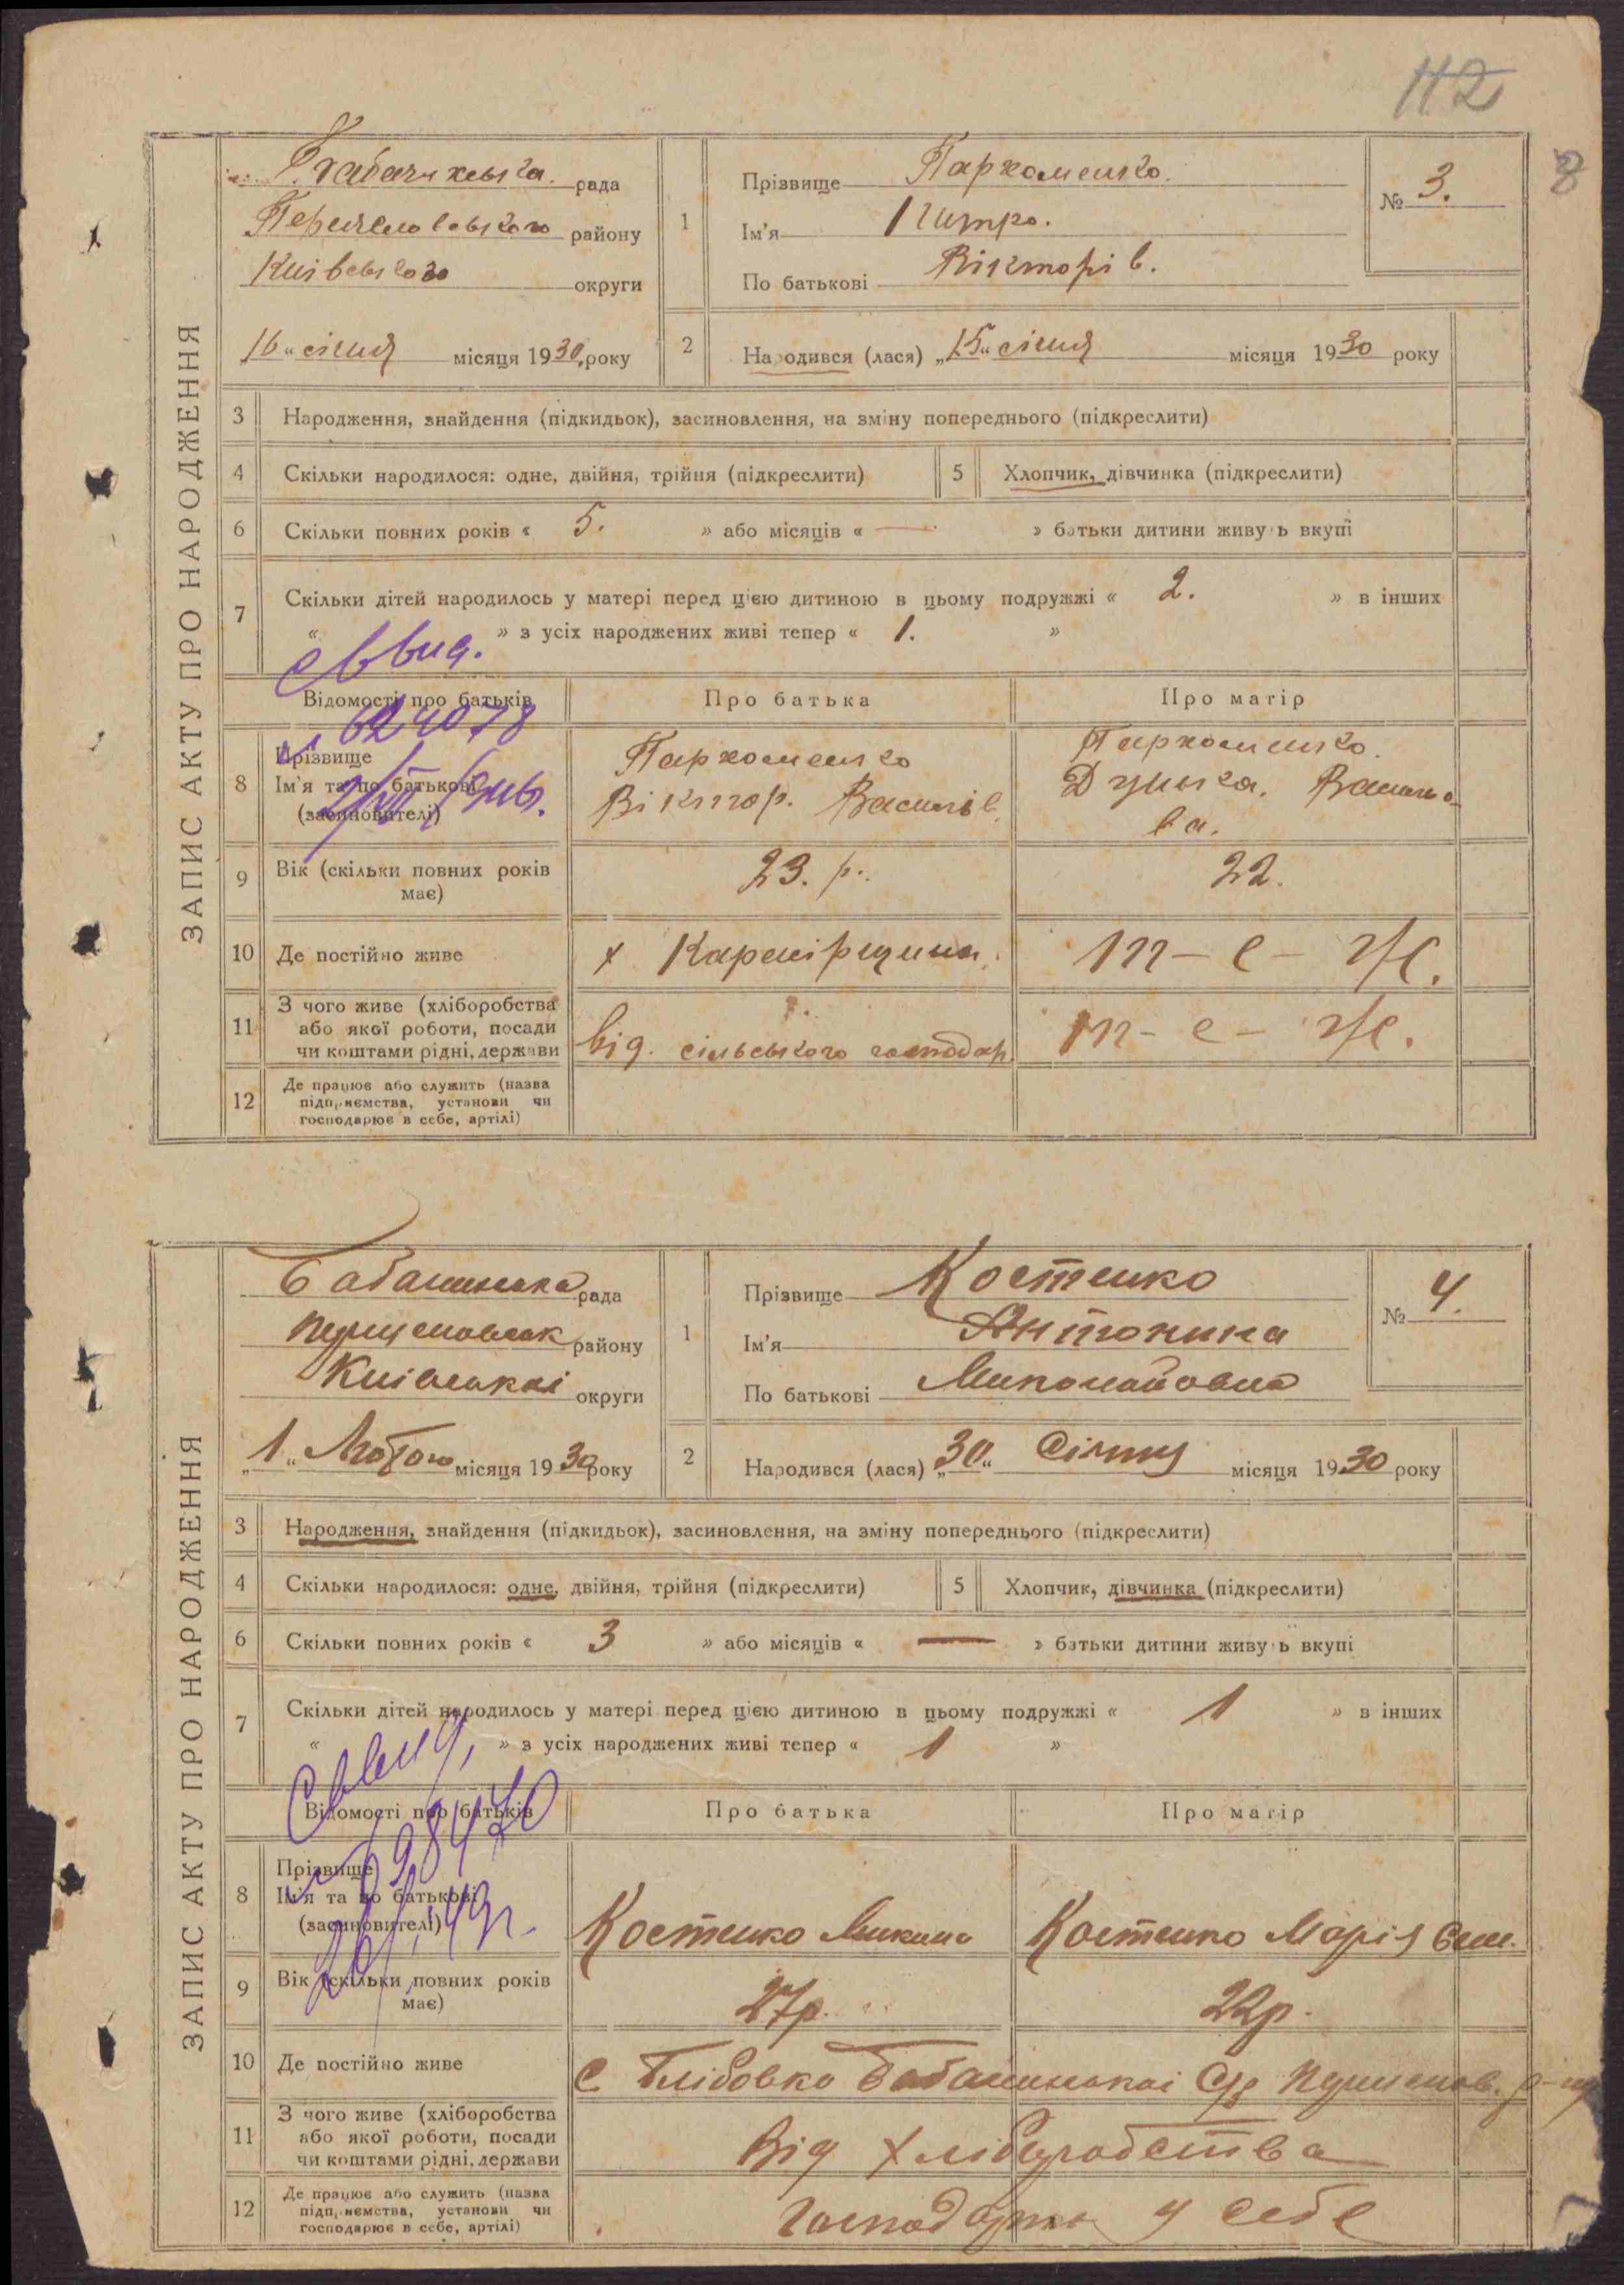 112
8
ЗАПИС АКТУ ПРО НАРОДЖЕННЯ
рада
району
Київського округи
16 " січня місяця 1930 року
1 Прізвище Пархоменко.
Ім'я
По батькові Вікторів.
№ 3.
2 Народився (лася) „15" січня місяця 1930 року
3 Народження, знайдення (підкидьок), засиновлення, на зміну попереднього (підкреслити)
4 Скільки народилося: одне, двійня, трійня (підкреслити)
5 Хлопчик, дівчинка (підкреслити)
6 Скільки повних років « 5. » або місяців « — » батьки дитини живуть вкупі
7 Скільки дітей народилось у матері перед цією дитиною в цьому подружжі « 2. » в інших
« » з усіх народжених живі тепер « 1. »
Відомості про батьків Про батька Про матір
8 Прізвище
Ім'я та по батькові
(засиновителі)
Пархоменко
Віктор. Василів.
Пархоменко.
Васильева.
9 Вік (скільки повних років має) 23. р. 22.
10 Де постійно живе х т-е-ж.
11 З чого живе (хліборобства
або якої роботи, посади
чи коштами рідні, держави
від. сільського господар. т-е-ж.
12 Де працює або служить (назва
підприємства, установи чи
господарює в себе, артілі)
ЗАПИС АКТУ ПРО НАРОДЖЕННЯ
рада
району
округи
„1" Лютого місяця 1930 року
1 Прізвище Костенко
Ім'я Антонина
По батькові Миколайовна
№ 4.
2 Народився (лася) „30" Січня місяця 1930 року
3 Народження, знайдення (підкидьок), засиновлення, на зміну попереднього (підкреслити)
4 Скільки народилося: одне, двійня, трійня (підкреслити)
5 Хлопчик, дівчинка (підкреслити)
6 Скільки повних років « 3 » або місяців « — » батьки дитини живуть вкупі
7 Скільки дітей народилось у матері перед цією дитиною в цьому подружжі « 1 » в інших
« » з усіх народжених живі тепер « 1 »
Відомості про батьків Про батька Про матір
8 Прізвище
Ім'я та по батькові
(засиновителі)
Костенко Костенко Марія
9 Вік (скільки повних років має) 27р. 22р.
10 Де постійно живе с.
11 З чого живе (хліборобства
або якої роботи, посади
чи коштами рідні, держави
Від хліборобства
12 Де працює або служить (назва
підприємства, установи чи
господарює в себе, артілі)
у себе